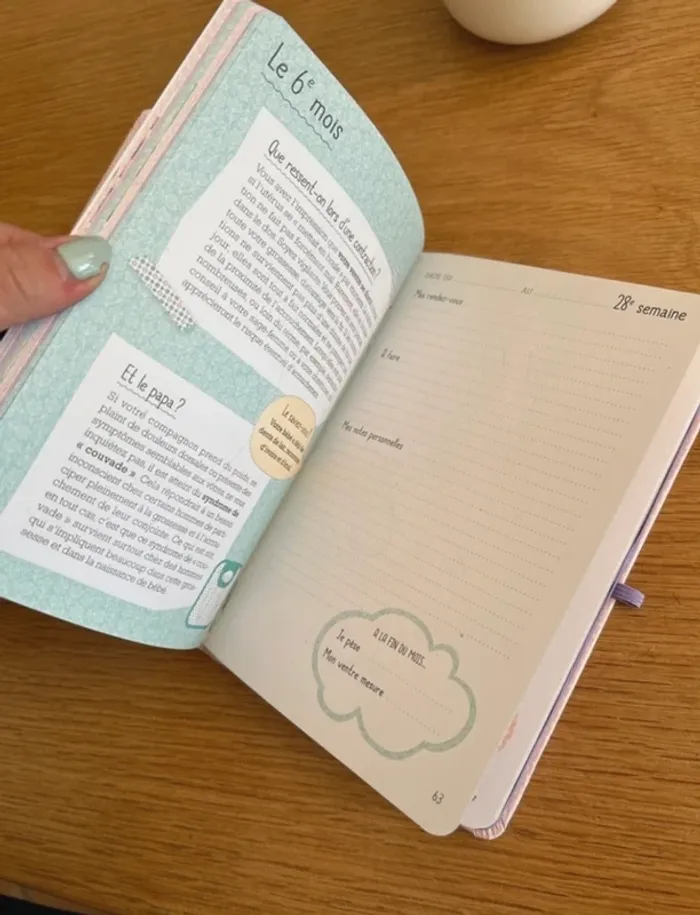 Le 6e mois
Que ressent-on lors d'une contraction?
Vous avez l'impression que votre ventre
si l'utérus se « mettait en boule »
tion ne fait pas forcément mal
dans le dos. Soyez vigilante
toute votre grossesse
tions ne surviennent pas
jour, elles sont tout à fait normales et
de la proximité de l'accouchement.
nombreuses, ou loin du terme, par exemple
conseil à votre sage-femme ou à votre
apprécieront le risque éventuel d'accouchement
Et le papa ?
Si votre compagnon prend du poids, se
plaint de douleurs dorsales ou présente des
symptômes semblables aux vôtres, ne vous
inquiétez pas, il est atteint du syndrome de
« couvade ». Cela répondrait à un besoin
inconscient chez certains hommes de parti-
ciper pleinement à la grossesse et à l'accou-
chement de leur conjointe. Ce qui est sûr,
en tout cas, c'est que ce syndrome de « cou-
vade » survient surtout chez des hommes
qui s'impliquent beaucoup dans cette gros-
sesse et dans la naissance de bébé.
Le saviez-vous ?
Votre bébé a déjà des
dents de lait, recouvertes
d'ivoire et d'émail.
DATE DU
AU
28e semaine
Mes rendez-vous
À faire
Mes notes personnelles
À LA FIN DU MOIS...
Je pèse
Mon ventre mesure
63